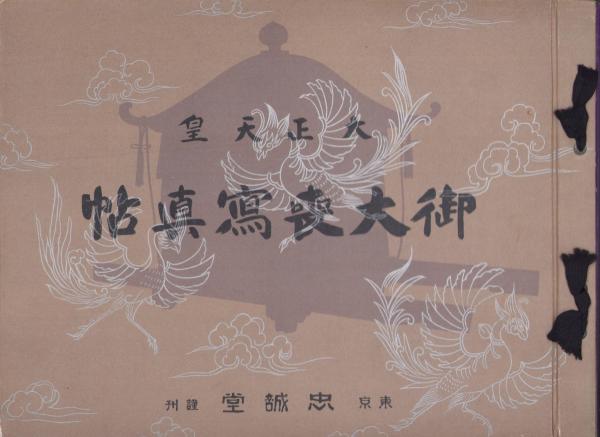 大正天皇
御大喪寫真帖
東京 忠誠堂 謹刊